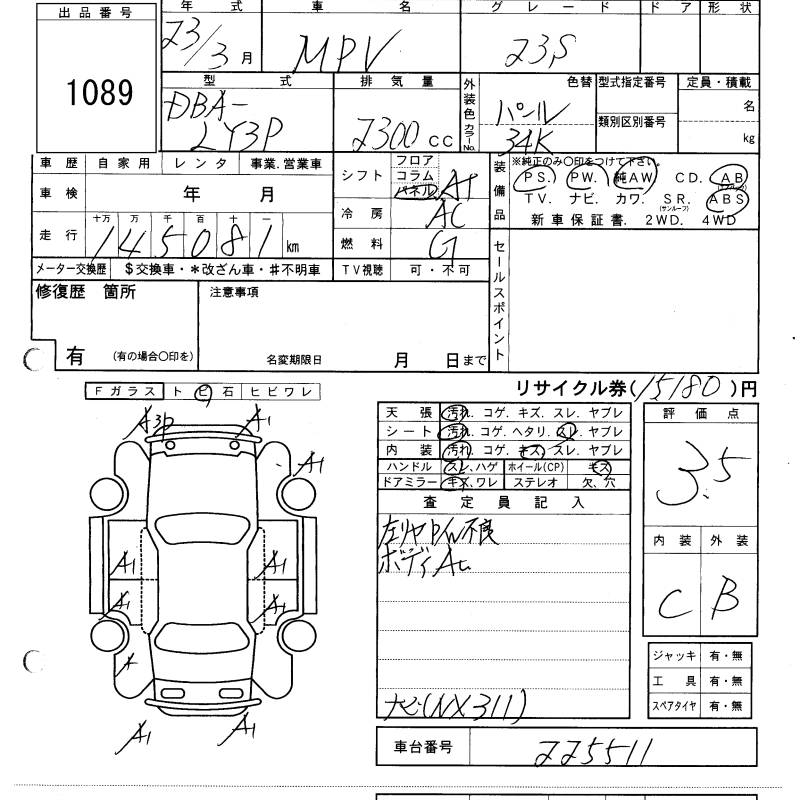 出品番号 年式 車名 グレード ドア 形状
1089 23/3月 MPV 23S
型式 排気量 外装色 カラーNo. 色替 型式指定番号 定員・積載
DBA-LY3P 2300cc パール 34K 類別区別番号 名 kg
車歴 自家用 レンタ 事業.営業車
車検 年 月
走行 十万 万 千 百 十 一
145081km
メーター交換歴 $交換車・*改ざん車・#不明車
シフト フロア コラム パネル AT
冷房 AC
燃料 G
TV視聴 可・不可
装備品 ※純正のみ○印をつけて下さい。
PS. PW. 純AW CD. AB(エアバック)
TV. ナビ. カワ. SR.(サンルーフ) ABS
新車保証書. 2WD. 4WD
セールスポイント
修復歴 箇所
有 (有の場合○印を)
注意事項
名変期限日 月 日まで
リサイクル券(15180)円
Fガラス トビ石 ヒビワレ
A3P A1
A1
A1 A1
A1 A1
A
A1 A1
天張 汚れ. コゲ. キズ. スレ. ヤブレ
シート 汚れ. コゲ. ヘタリ. スレ. ヤブレ
内装 汚れ. コゲ. キズ. スレ. ヤブレ
ハンドル スレ、ハゲ ホイール(CP) キズ
ドアミラー キズ、ワレ ステレオ 欠、穴
査定員記入
左リヤP/W不良
ボディAに
ナビ(NX311)
評価点
3.5
内装 外装
C B
ジャッキ 有・無
工具 有・無
スペアタイヤ 有・無
車台番号 225511